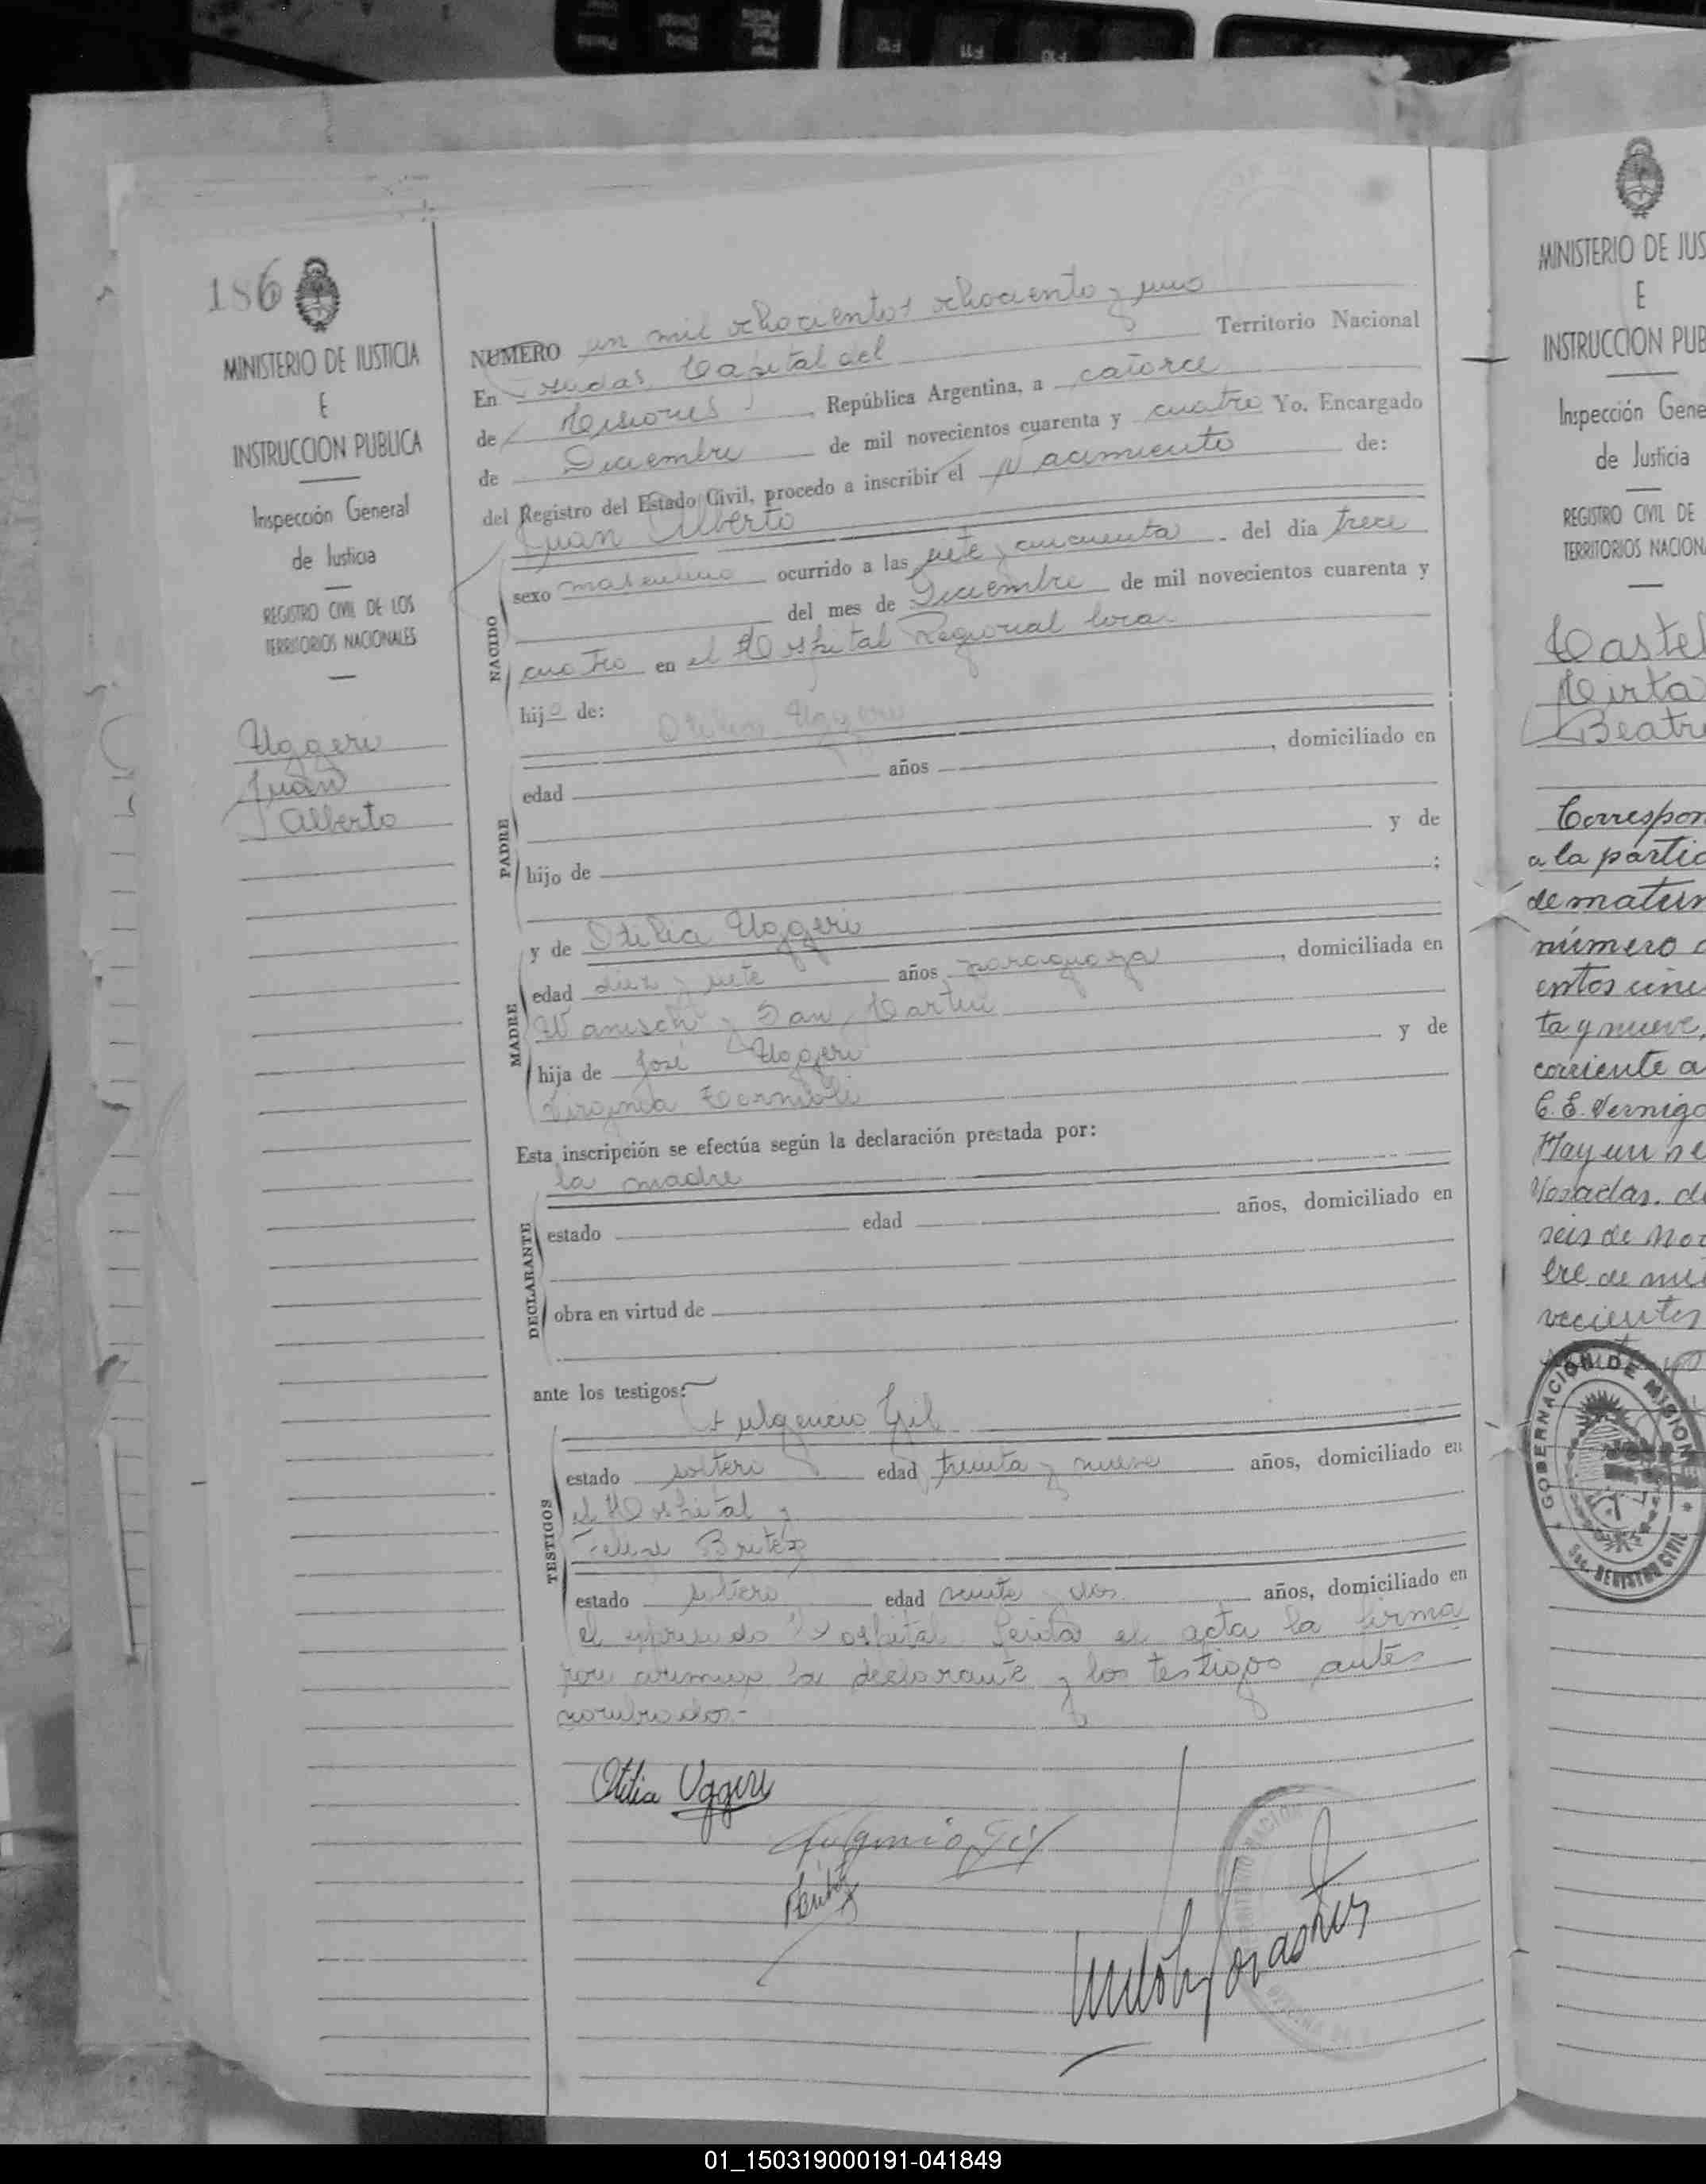 186
MINISTERIO DE JUSTICIA
E
INSTRUCCION PUBLICA
Inspección General
de Justicia
REGISTRO CIVIL DE LOS
TERRITORIOS NACIONALES
Uggeri
Juan
Alberto
NUMERO un mil ochocientos ochociento y uno
En Posadas, Capital del Territorio Nacional
de Misiones, República Argentina, a catorce
de Diciembre de mil novecientos cuarenta y cuatro Yo, Encargado
del Registro del Estado Civil, procedo a inscribir el Nacimiento de:
Juan Alberto
NACIDO
sexo masculino ocurrido a las siete y cincuenta del día trece
del mes de Diciembre de mil novecientos cuarenta y
cuatro en el Hospital Regional local
hijo de: Otilia Uggeri
PADRE
edad años , domiciliado en
y de
hijo de :
MADRE
y de Otilia Uggeri
edad diez y siete años paraguaya , domiciliada en
Wanisch y San Martin
hija de José Uggeri y de
Virginia
Esta inscripción se efectúa según la declaración prestada por:
la madre
DECLARANTE
estado edad años, domiciliado en
obra en virtud de
ante los testigos:
Fulgencio Gil
TESTIGOS
estado soltero edad treinta y nueve años, domiciliado en
el Hospital y
Felipe Britez
estado soltero edad veinte y dos años, domiciliado en
el expresado Hospital. Leida el acta la firma
por la declarante y los testigos antes
nombrados.-
Otilia Uggeri
Fulgencio Gil
MINISTERIO DE JUS
E
INSTRUCCION PUB
Inspección Gene
de Justicia
REGISTRO CIVIL DE
TERRITORIOS NACION
Castel
Mirta
Beatri
Correspon
a la partid
de matrim
número c
entos cinc
ta y nueve,
corriente a
C. E. Vernigo
Hay un se
Posadas, di
seis de Nov
bre de mil
vecientos
GOBERNACION DE MISIONES
Sec. REGISTRO CIVIL
01_150319000191-041849